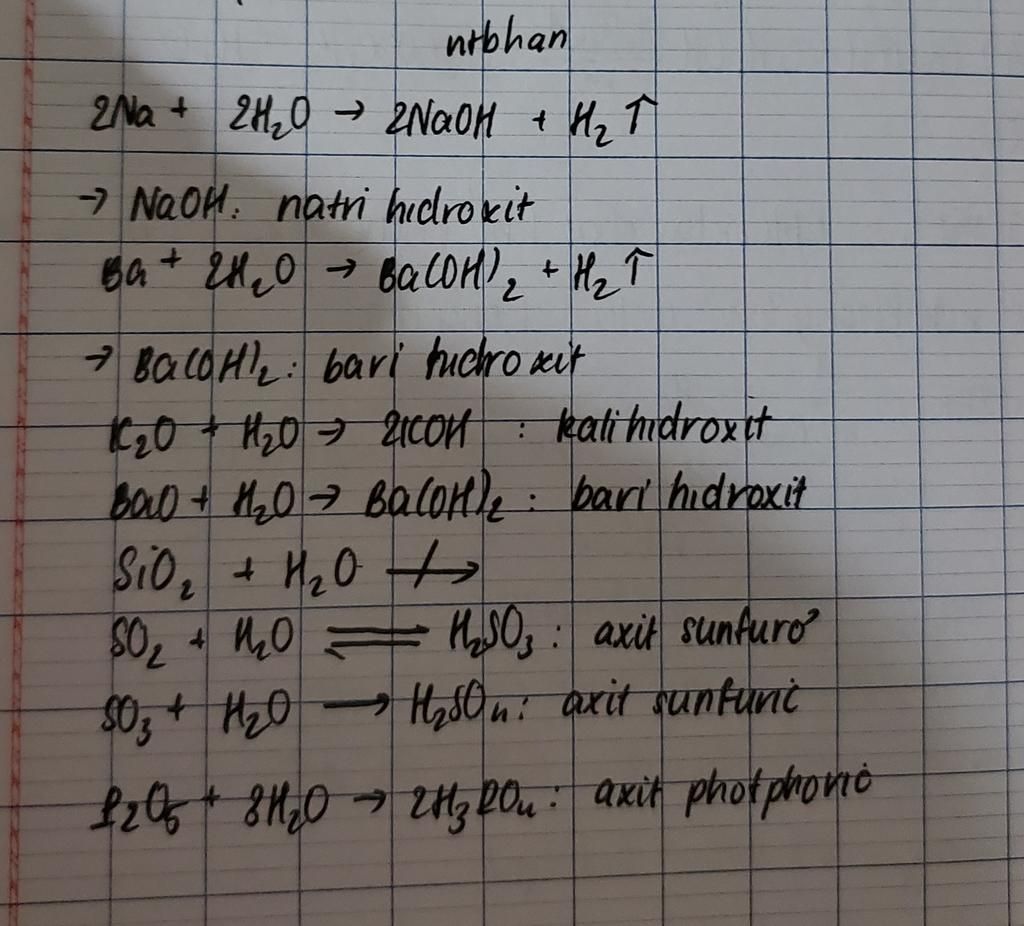 ntbhan
2Na + 2H₂O → 2NaOH + H₂ ↑
→ NaOH: natri hidroxit
Ba + 2H₂O → Ba(OH)₂ + H₂ ↑
→ Ba(OH)₂: bari hidroxit
K₂O + H₂O → 2KOH : kali hidroxit
BaO + H₂O → Ba(OH)₂ : bari hidroxit
SiO₂ + H₂O ↛
SO₂ + H₂O ⇌ H₂SO₃ : axit sunfurơ
SO₃ + H₂O → H₂SO₄ : axit sunfuric
P₂O₅ + 3H₂O → 2H₃PO₄ : axit photphoric